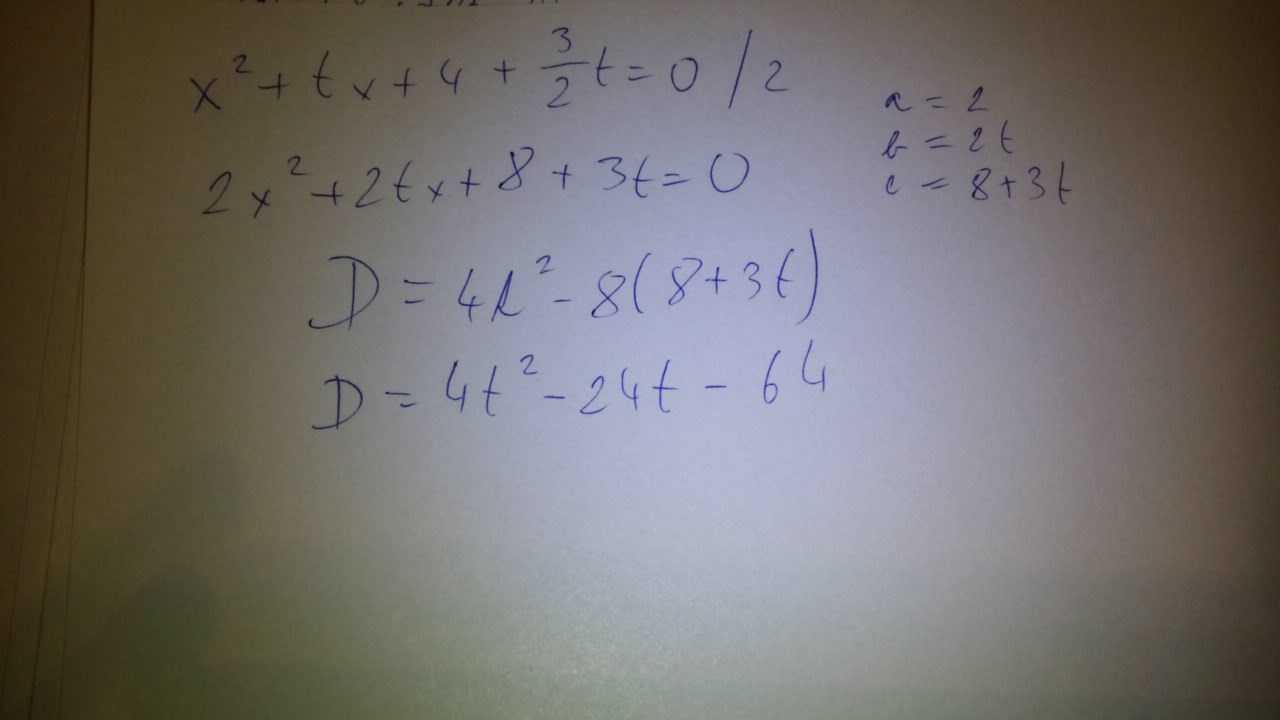 x² + tx + 4 + 3/2 t = 0 / 2
2x² + 2tx + 8 + 3t = 0
a = 2
b = 2t
c = 8 + 3t
D = 4t² - 8(8 + 3t)
D = 4t² - 24t - 64